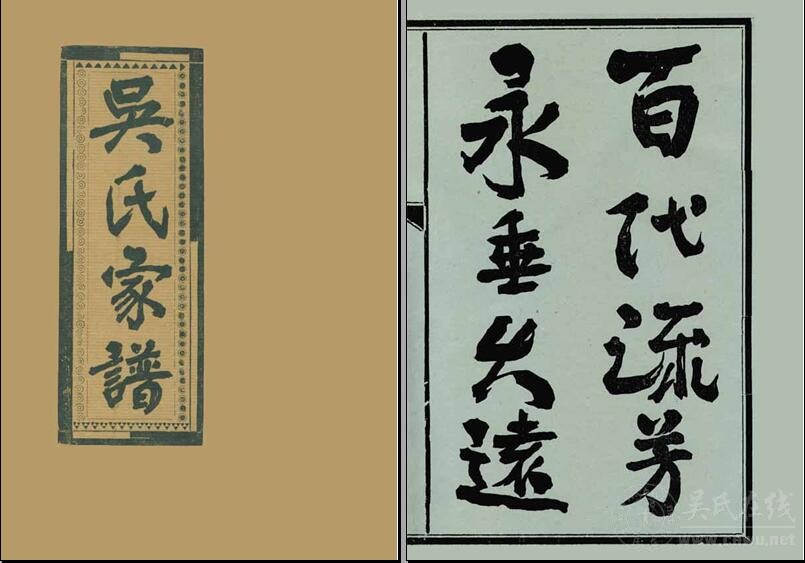 吳氏家譜
百代流芳
永垂久遠
吴氏在线